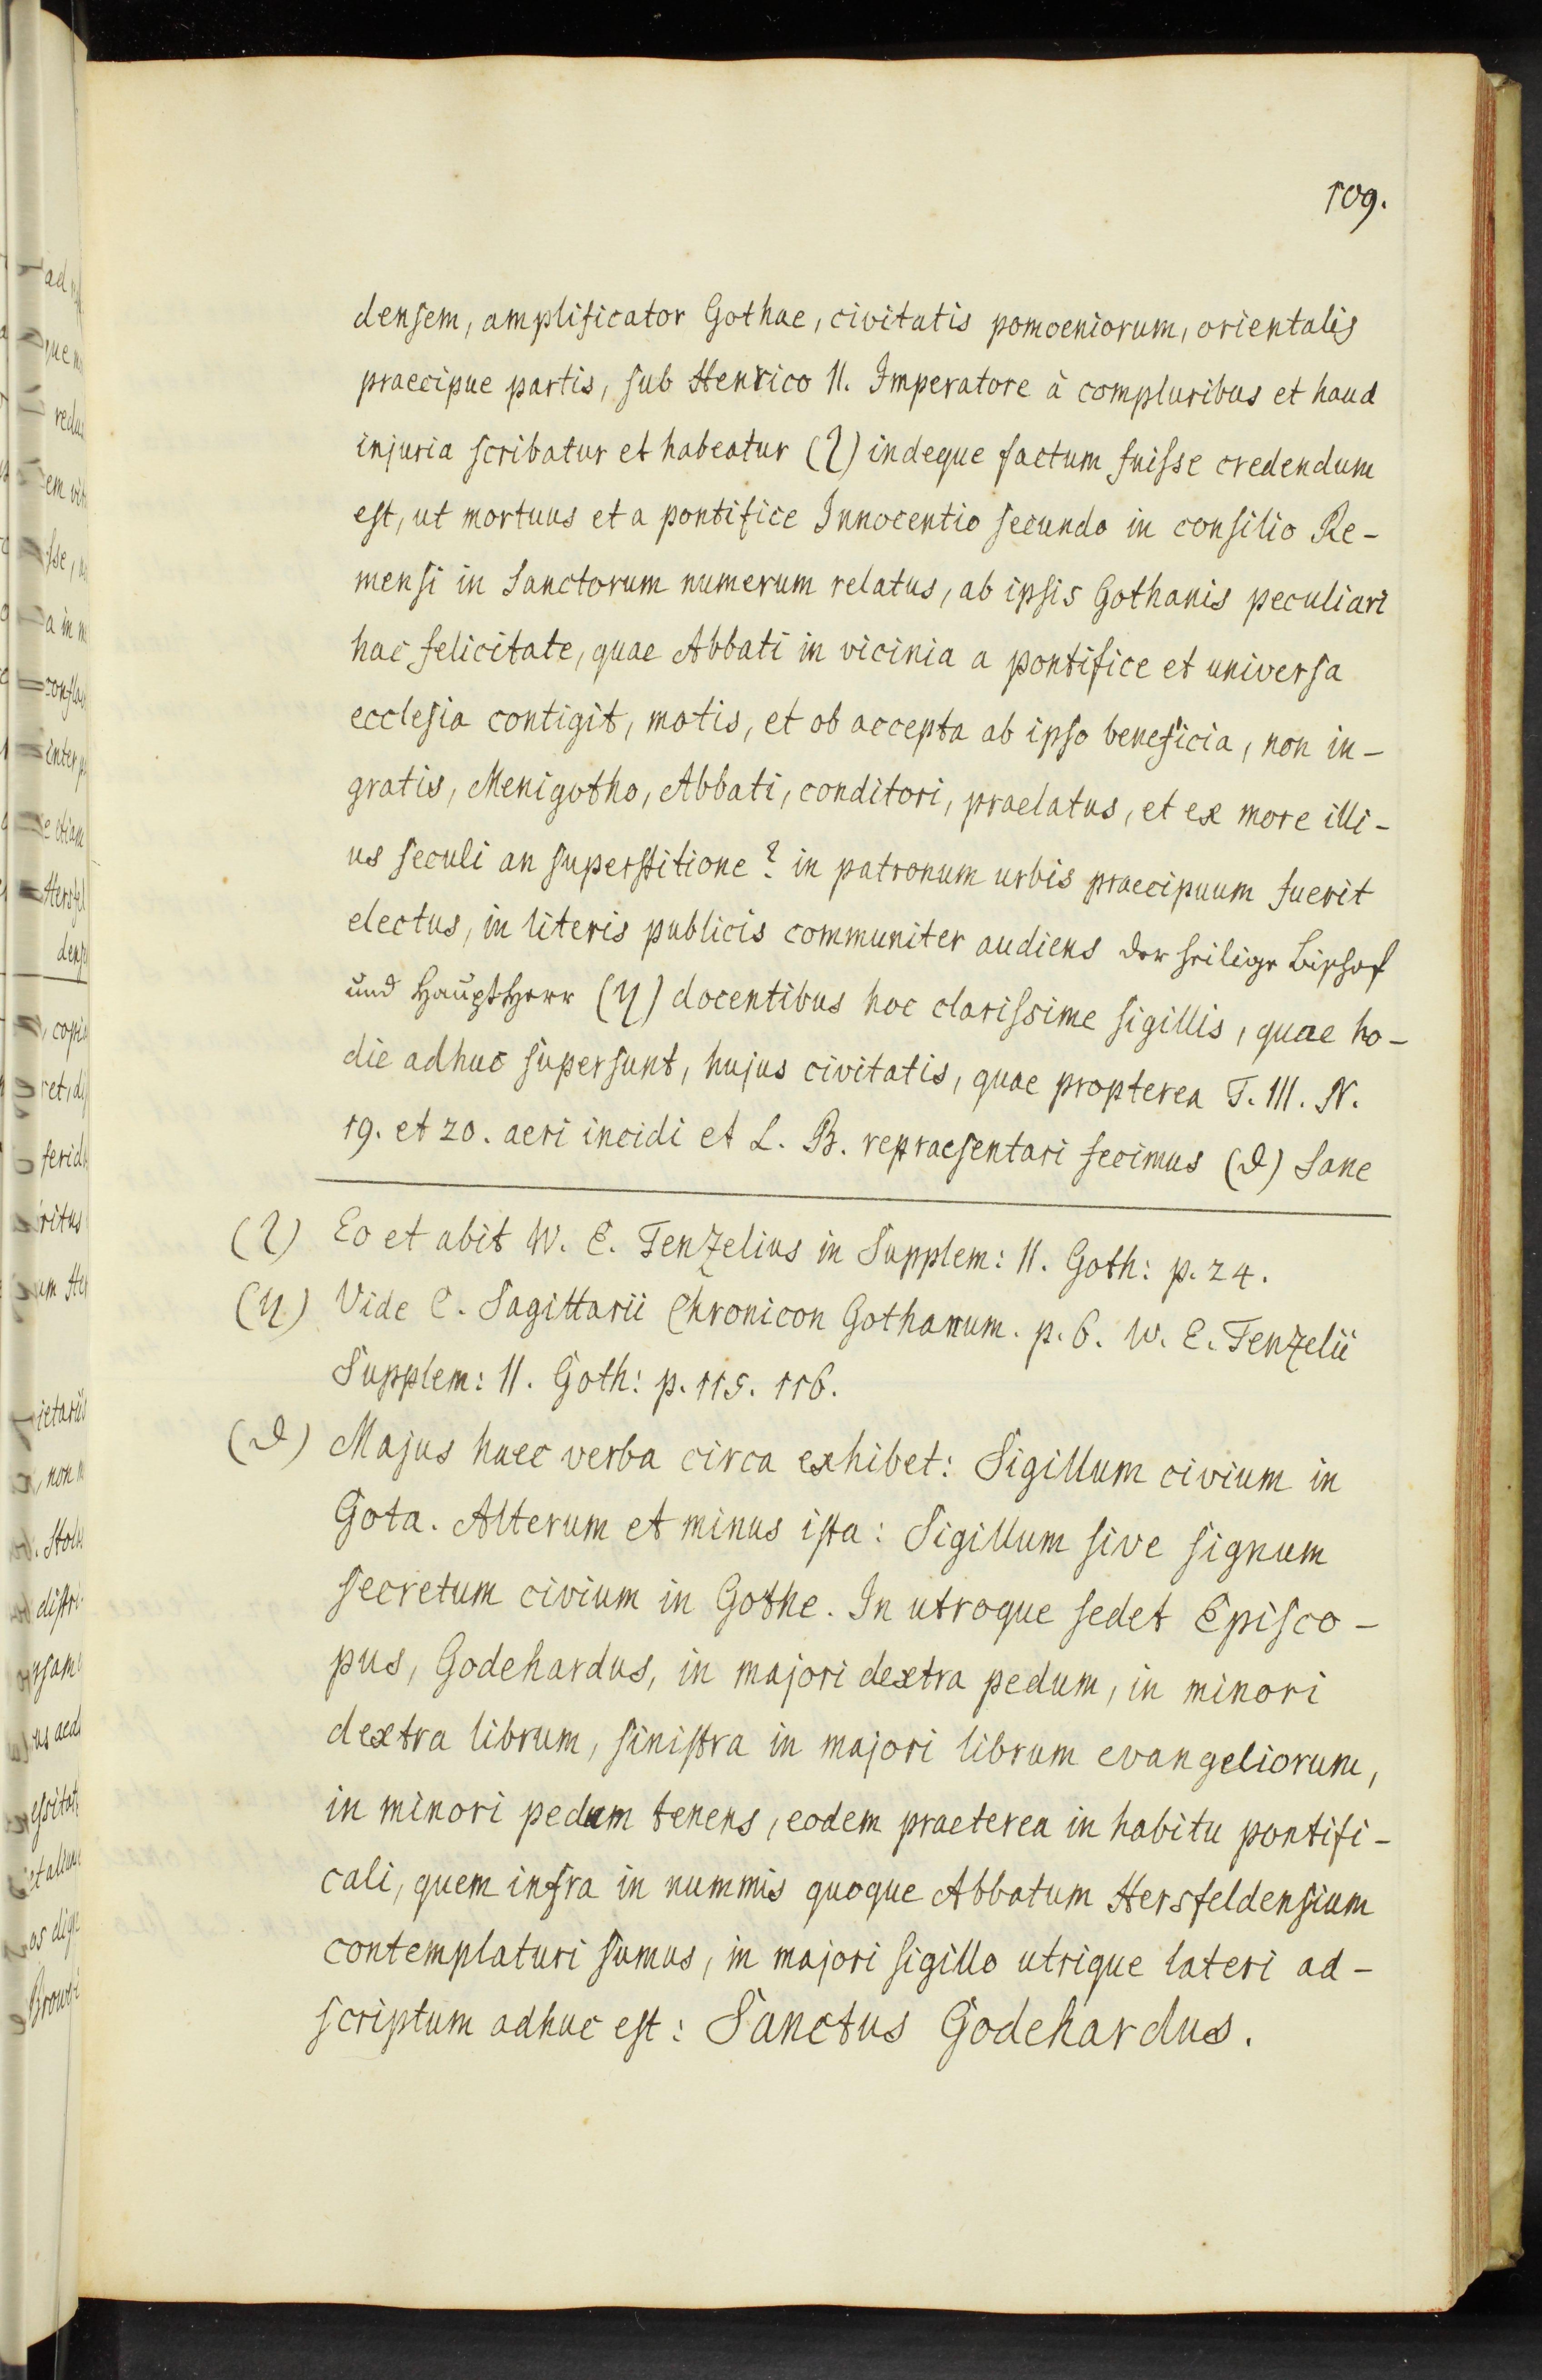 109.
denſem, amplificator Gothae, civitatis pomoeniorum, orientalis
praecipue partis, ſub Henrico II. Imperatore à compluribus et haud
injuria ſcribatur et habeatur (ζ) indeque factum fuiſse credendum
eſt, ut mortuus et a pontifice Innocentio ſecundo in conſilio Re-
menſi in Sanctorum numerum relatus, ab ipſis Gothanis peculiari
hac felicitate, quae Abbati in vicinia a pontifice et univerſa
eccleſia contigit, motis, et ob accepta ab ipſo beneficia, non in-
gratis, Menigotho, Abbati, conditori, praelatus, et ex more illi-
us ſeculi an ſuperſtitione? in patronum urbis praecipuum fuerit
electus, in literis publicis communiter audiens der heilige Biſchof
und HauptHerr (η) docentibus hoc clariſsime ſigillis, quae ho-
die adhuc ſuperſunt, hujus civitatis, quae propterea T. III. N.
19. et 20. aeri incidi et L. B. repraeſentari fecimus (ϑ) Sane
(ζ) Eo et abit W. E. Tenzelius in Supplem: II. Goth: p. 24.
(η) Vide C. Sagittarii Chronicon Gothanum. p. 6. W. E. Tenzelii
Supplem: II. Goth: p. 115. 116.
(ϑ) Majus haec verba circa exhibet: Sigillum civium in
Gota. Alterum et minus iſta: Sigillum ſive ſignum
ſecretum civium in Gothe. In utroque ſedet Epiſco-
pus, Godehardus, in majori dextra pedum, in minori
dextra librum, ſiniſtra in majori librum evangeliorum,
in minori pedum tenens, eodem praeterea in habitu pontifi-
cali, quem infra in nummis quoque Abbatum Hersfeldenſium
contemplaturi ſumus, in majori ſigillo utrique lateri ad-
ſcriptum adhuc eſt: Sanctus Godehardus.